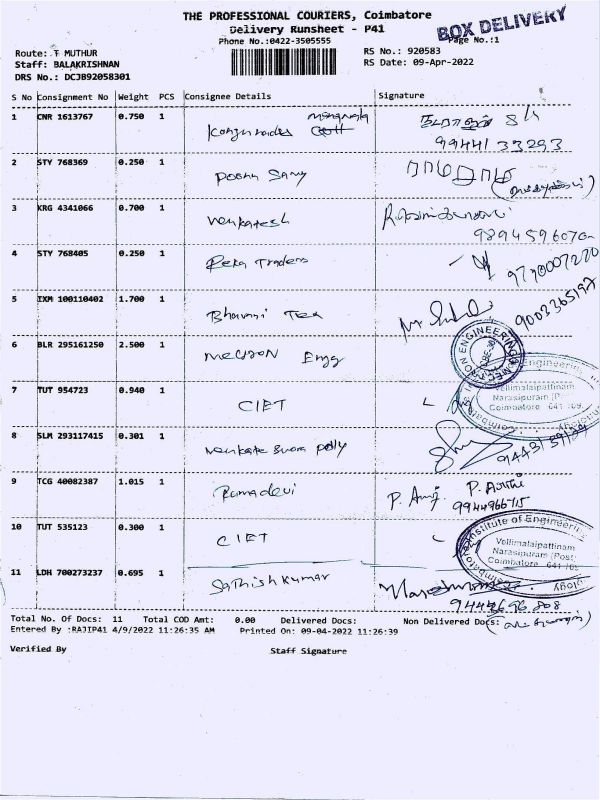 THE PROFESSIONAL COURIERS, Coimbatore
Delivery Runsheet - P41
BOX DELIVERY
Phone No.:0422-3505555
Page No.:1
Route: T MUTHUR
RS No.: 920583
Staff: BALAKRISHNAN
RS Date: 09-Apr-2022
DRS No.: DCJB92058301
S No Consignment No Weight PCS Consignee Details Signature
1 CNR 1613767 0.750 1
99441 33293
2 STY 768369 0.250 1 Poona Samy
3 KRG 4341066 0.700 1 Venkatesh
4 STY 768405 0.250 1 Reka Traders
9790007270
5 IXM 100110402 1.700 1 Bhavani Tea
9003365197
6 BLR 295161250 2.500 1 Engg
7 TUT 954723 0.940 1 CIET
Engineering
Vellimalaipattinam
Narasipuram (P
Coimbatore 641 109
8 SLM 293117415 0.301 1
9 TCG 40082387 1.015 1 Ramadevi
10 TUT 535123 0.300 1 CIET
Institute of Engineering
Vellimalaipattinam
Narasipuram (Post)
Coimbatore 641 109
11 LDH 700273237 0.695 1 Sathish kumar
Total No. Of Docs: 11 Total COD Amt: 0.00 Delivered Docs: Non Delivered Docs:
Entered By :RAJIP41 4/9/2022 11:26:35 AM Printed On: 09-04-2022 11:26:39
Verified By Staff Signature